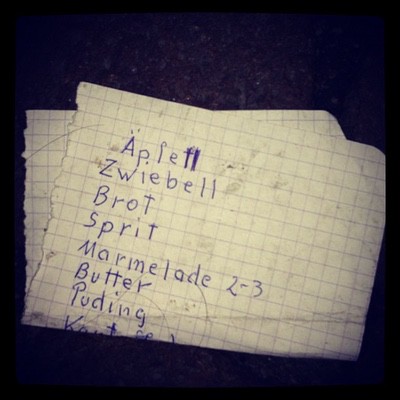 Äpfell
Zwiebell
Brot
Sprit
Marmelade 2-3
Butter
Puding